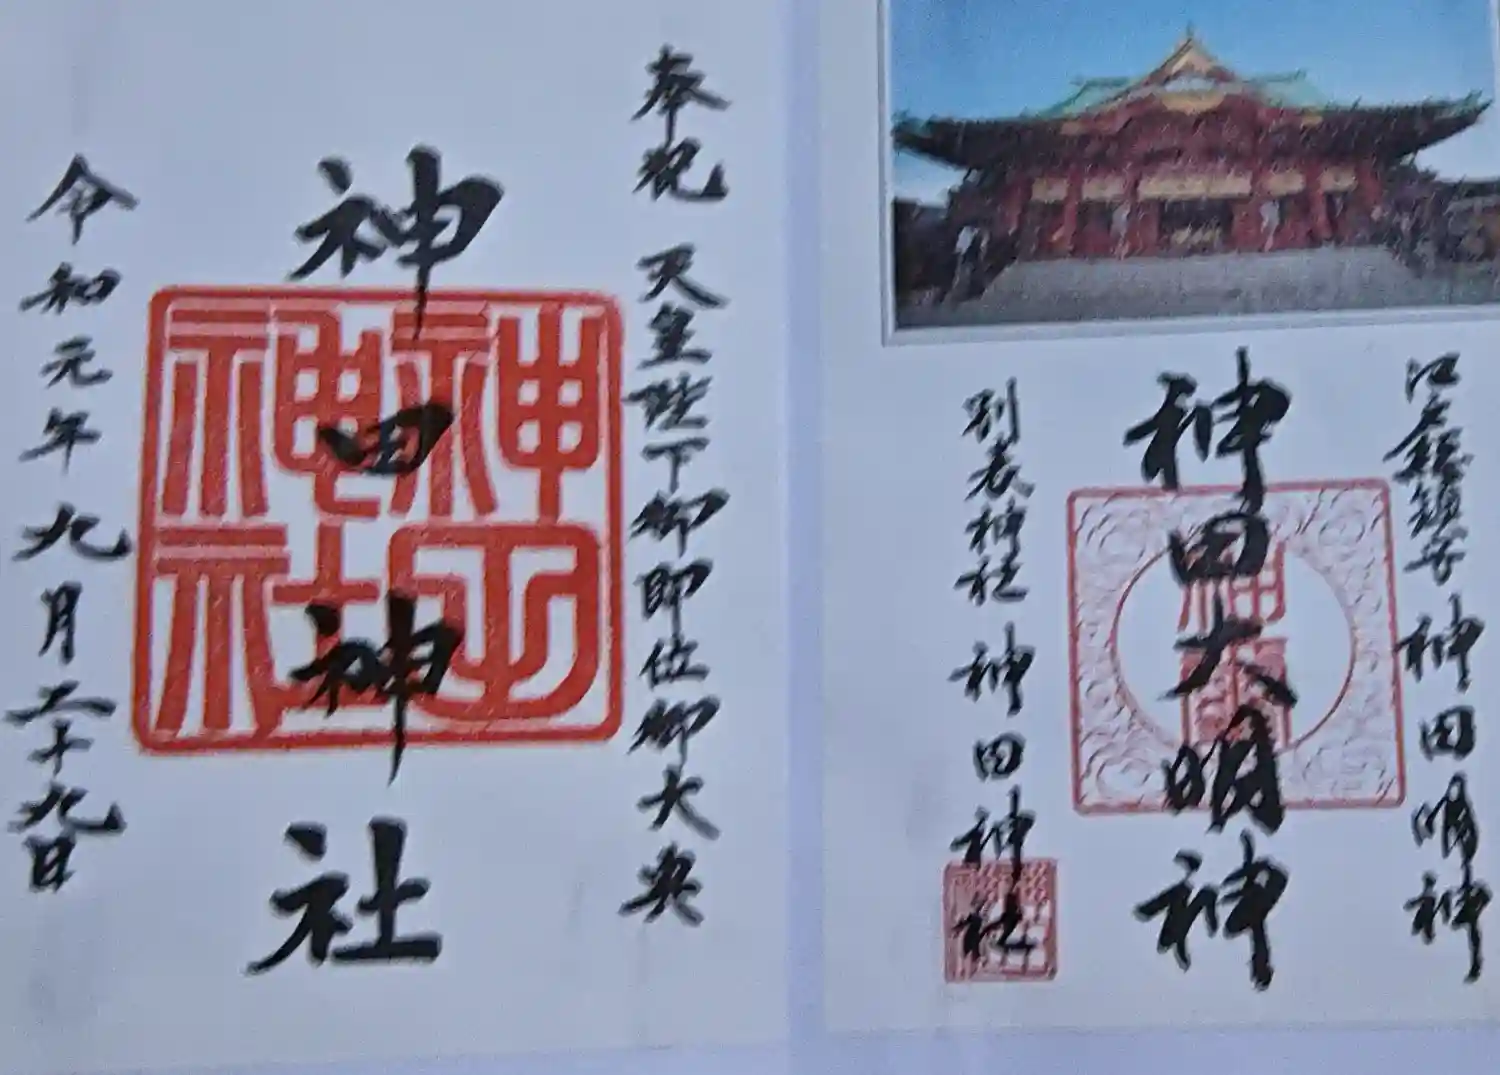 奉祝 天皇陛下御即位御大典
神田神社
令和元年九月二十九日
神田神社
江戸総鎮守 神田明神
神田大明神
別表神社 神田神社